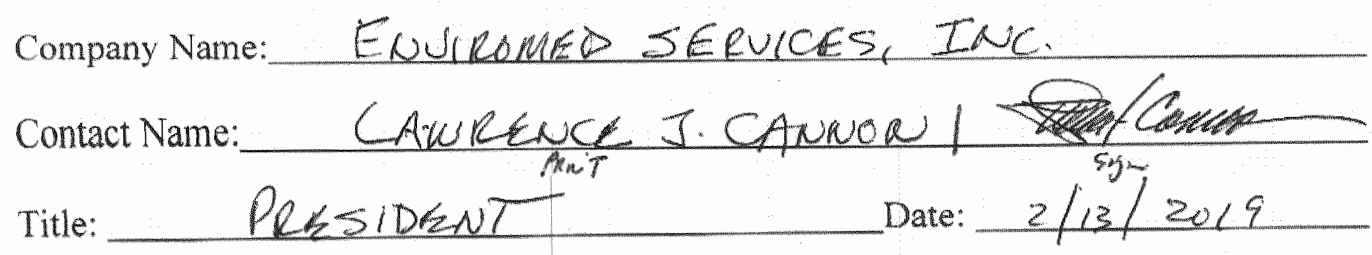 Company Name: ENVIROMED SERVICES, INC.
Contact Name: LAWRENCE J. CANNON |
Print Sign
Title: PRESIDENT Date: 2/13/2019